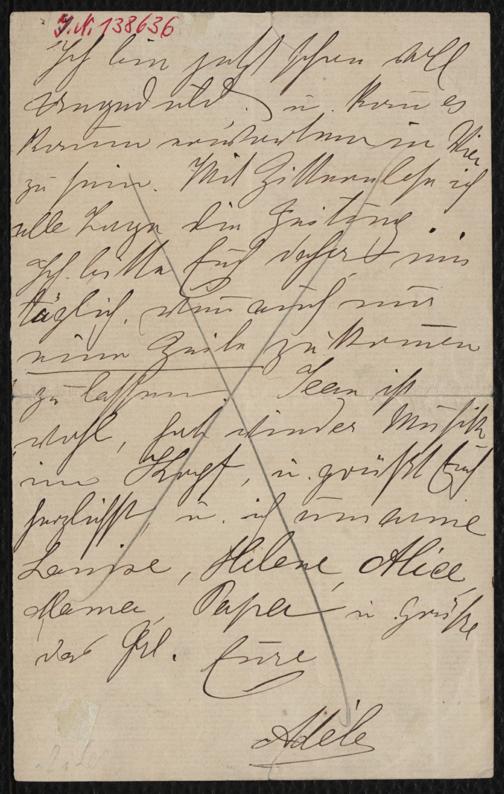 J.N. 138636
Ich bin jetzt schon voll
Ungeduld u. kann es
kaum erwarten in Wien
zu sein. Mit Zittern lese ich
alle Tage die Zeitung.
Ich bitte Euch daher mir
täglich, wenn auch nur
eine Zeile zukommen
zu lassen. Jean ist
wohl, hat wieder Musik
im Kopf, u. grüßt Euch
herzlichst, u. ich umarme
Louise, Helene, Alice,
Mama, Papa u Grüße
das Frl. Eure
Adele